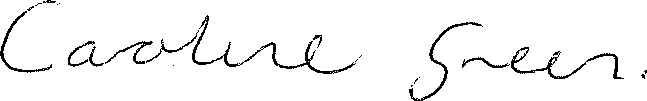 Caroline Green.